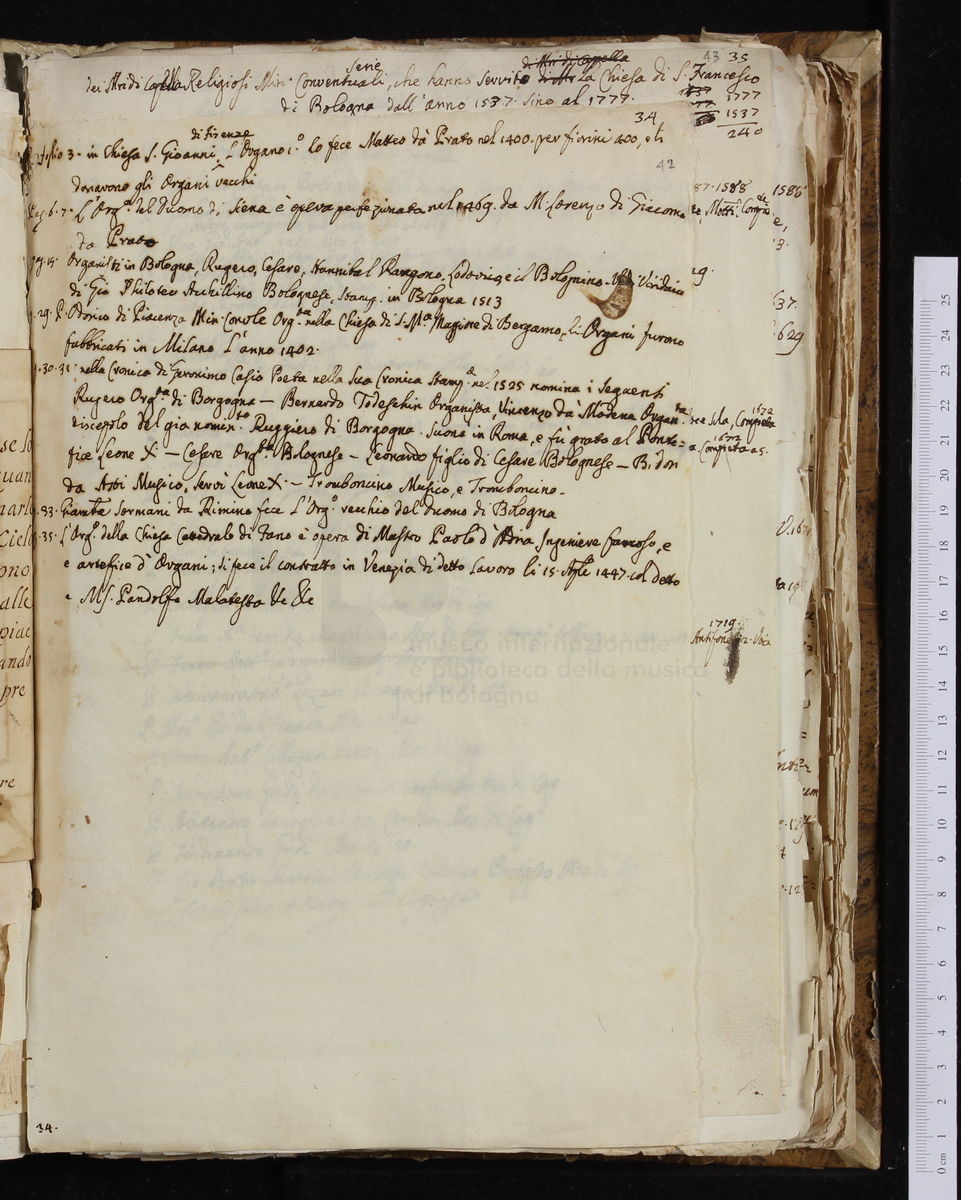 43 35
Serie
di Mri di Capella
dei Mri di Capella Religiosi Min. Conventuali, che hanno servito la Chiesa di S. Francesco
di Bologna dall'anno 1537. sino al 1777.
1777
1537
240
34
di Firenze
foglio 3. in Chiesa S. Gioanni, L'Organo 1.o lo fece Matteo da Prato nel 1400. per fiorini 400, e li
42
donavono gli Organi vecchi
87. 1588 1585
6. 7. L'Org.o del Duomo di Siena è opera perfezionata nel 1469. da M. Lorenzo di Giacomo
Motti. Compie
da Prato
pag. 15. Organisti in Bologna, Rugero, Cesare, Hannibal Rangono, Lodovico, e il Bolognino. Viridario
di Gio Philoteo Achillino Bolognese, Stamp. in Bologna 1513
37.
29. P. Odorico di Piacenza Min. Convle Org.sta nella Chiesa di S. M.a Maggiore di Bergamo, li Organi furono
629
fabbricati in Milano L'anno 1402.
30. 31. nella Cronica di Geronimo Casio Poeta nella sua Cronica Stamp.a nel 1525 nomina i seguenti
Rugero Org.ta di Borgogna — Bernardo Todeschin Organista, Vincenzo da Modena Organ.ta
1672
Compieta
discepolo del gia nomin.to Ruggiero di Borgogna. Suono in Roma, e fù grato al Ponte=
1672
Compieta a 5.
fice Leone X. — Cesare Org.ta Bolognese — Leonardo figlio di Cesare Bolognese — Bidon
da Asti Musico, servì Leone X. — Tromboncino Musico, e Tromboncino.
33. Gianba Sormani da Rimino fece L'Org.o vecchio dal Duomo di Bologna
35. L'Org.o della Chiesa Cattedrale di Fano è opera di Mastro Paolo d'Adria Ingeniere famoso, e
e artefice d'Organi; si fece il contratto in Venezia di detto Lavoro li 15. Aple 1447. col detto
e Ms. Pandolfo Malatesta &c &c
1719.
Antifone
museo internazionale
e biblioteca della musica
di bologna
34.